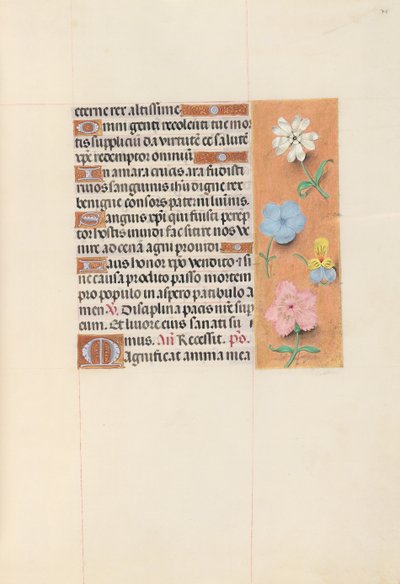 eterne rex altissime
Omni genti recolenti tue mor
tis supplicium da virtutem et salutē
xp̄e redemptor omnium
In amara crucis ara fudisti
rivos sanguinus ih̄u digne rex
benigne consors paterni luminis.
Sanguis xp̄i qui fuisti perep
tor hostis invidi fac sitire nos ve
nire ad cenā agni providi
Laus honor xp̄o vendito · et si
ne causa prodito passo mortem
pro populo in aspero patibulo a
men Disciplina pacis nr̄e sup
eum. Et livore eius sanati su
mus. Añ Recessit. p̄s.
Magnificat anima mea